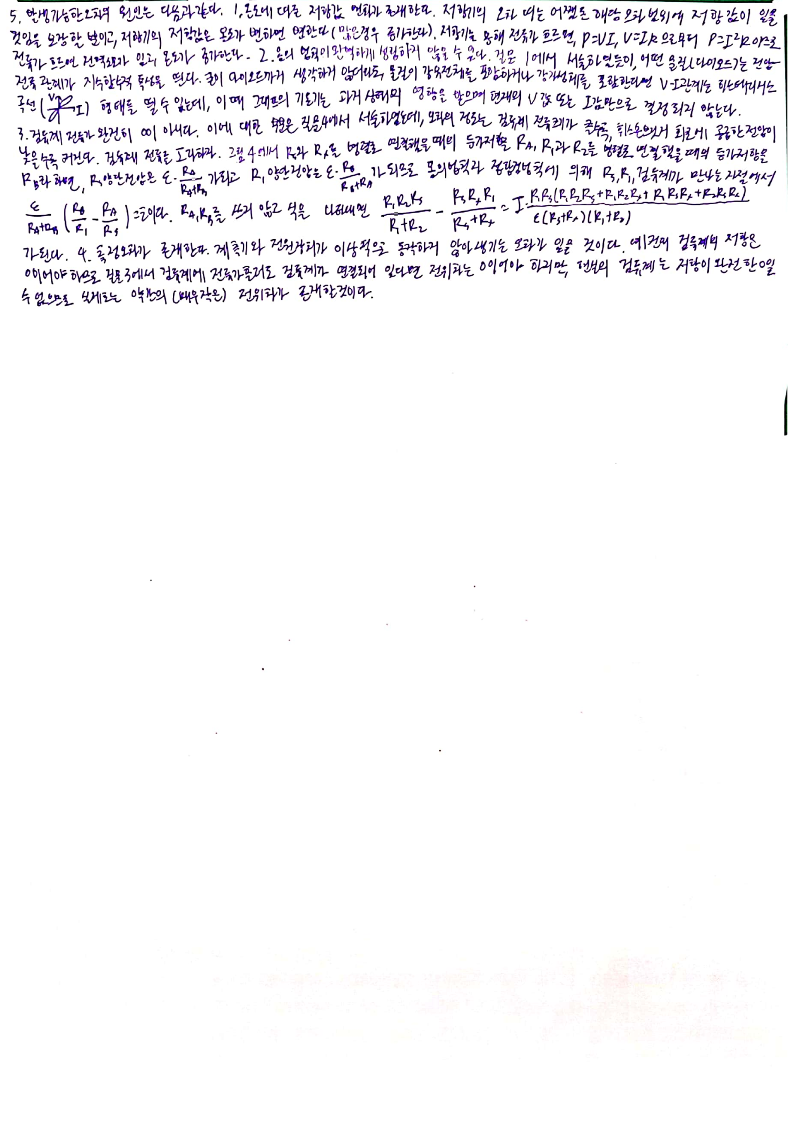 5. 발생가능한 오차의 원인은 다음과 같다. 1. 온도에 따른 저항값 변화가 존재한다. 저항기의 오차 띠는 어쨌든 해당 오차 범위에 저항값이 있을
것임을 보장할 뿐이고, 저항기의 저항값은 온도가 변하면 변한다(많은 경우 증가한다). 저항기를 통해 전류가 흐르면, P=VI, V=IR 으로부터 P=I²R 이므로
전류가 흐르면 전력소모가 있고 온도가 증가한다. 2. 옴의 법칙이 완벽하게 성립하지 않을 수 있다. 질문 1에서 서술하였듯이, 어떤 물질(다이오드)는 전압
전류 관계가 지수함수적 특성을 띈다. 굳이 다이오드까지 생각하지 않더라도, 물질이 강유전체를 포함하거나 강자성체를 포함한다면 V-I관계는 히스테리시스
곡선 (V I) 형태를 띌 수 있는데, 이 때 그래프의 기울기는 과거 상태의 영향을 받으며 현재의 V값 또는 I값만으로 결정되지 않는다.
3. 검류계 전류가 완전히 0이 아니다. 이에 대한 질문4에서 서술하였는데, 오차의 정도는 검류계 전류계가 회로에 공급한 전압이
낮을수록 커진다. 검류계 전류를 I라하자. 그림 4에서 와 Rx를 병렬로 연결했을 때의 등가저항을 RA, R1과 R2를 병렬로 연결했을 때의 등가저항을
RB라 하면, 양단전압은 ε·RA/(RA+RB) 가 되고 R1 양단전압은 ε·RB/(RA+RB) 가 되므로 옴의 법칙과 에 의해 R3, R1, 검류계가 만나는 지점에서
ε/(RA+RB) (RB/R1 - RA/R3) = I이다. RA, RB를 쓰지 않고 식을 나타내면 R1R2R3/(R1+R2) - R3RxR1/(R3+Rx) = I R1R3(R1R2R3+R1R2Rx+R1R3Rx+R2R3Rx)/ε(R3+Rx)(R1+R2)
가 된다. 4. 측정오차가 존재한다. 계측기와 전원장치가 이상적으로 동작하지 않아 생기는 오차가 있을 것이다. 예컨대 검류계의 저항은
0이어야 하므로 질문 3에서 검류계에 전류가 흘러도 검류계가 연결되어 있다면 전위차는 0이어야 하지만, 현실의 검류계는 저항이 완전한 0일
수 없으므로 실제로는 약간의 (매우 작은) 전위차가 존재할 것이다.